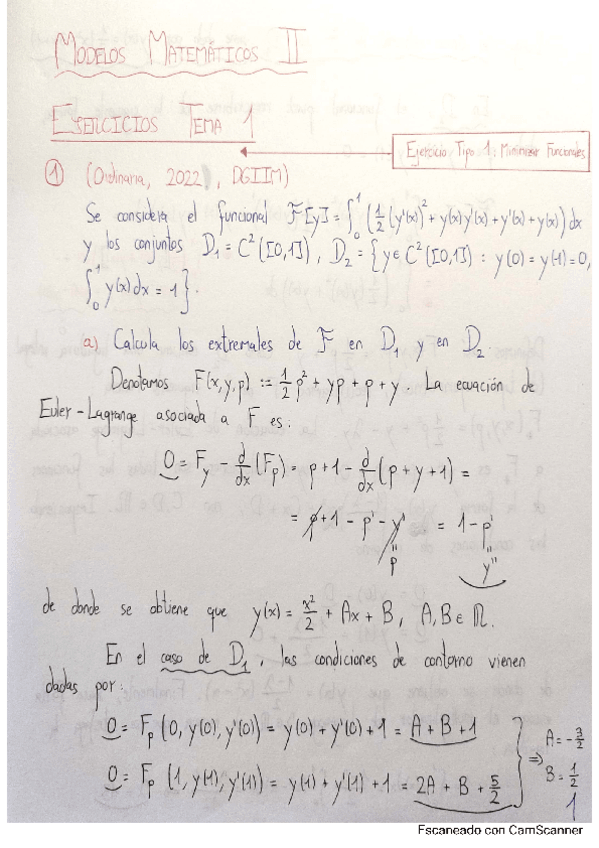 MODELOS MATEMÁTICOS II
EJERCICIOS TEMA 1
Ejercicio Tipo 1: Minimizar Funcionales
① (Ordinaria, 2022, DGIIM)
Se considera el funcional F[y] = ∫₀¹ (1/2 (y'(x))² + y(x)y'(x) + y'(x) + y(x)) dx
y los conjuntos D₁ = C²([0,1]), D₂ = {y ∈ C²([0,1]) : y(0) = y(1) = 0,
∫₀¹ y(x)dx = 1}.
a) Calcula los extremales de F en D₁ y en D₂
Denotamos F(x,y,p) := 1/2 p² + yp + p + y. La ecuación de
Euler-Lagrange asociada a F es:
0 = F_y - d/dx (F_p) = p + 1 - d/dx (p + y + 1) =
= p + 1 - p' - y' = 1 - p'
" "
p y''
de donde se obtiene que y(x) = x²/2 + Ax + B, A,B ∈ ℝ.
En el caso de D₁, las condiciones de contorno vienen
dadas por:
0 = F_p (0, y(0), y'(0)) = y(0) + y'(0) + 1 = A + B + 1
0 = F_p (1, y(1), y'(1)) = y(1) + y'(1) + 1 = 2A + B + 5/2
⇒ A = -3/2
B = 1/2
1
Escaneado con CamScanner